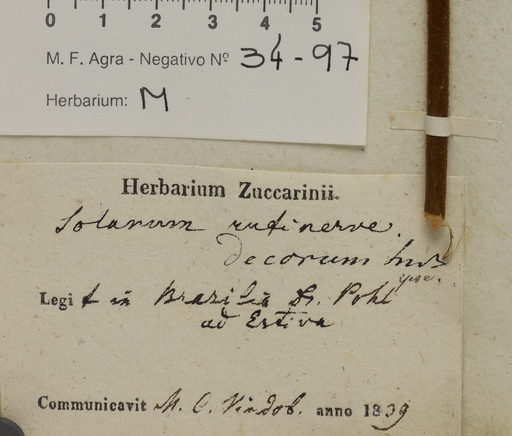 0 1 2 3 4 5
M. F. Agra - Negativo Nº 34-97
Herbarium: M
Herbarium Zuccarinii.
Solanum rufinerve.
decorum
Legit in Brasilia Dr. Pohl
ad Estiva
Communicavit M. C. Vindob. anno 1839